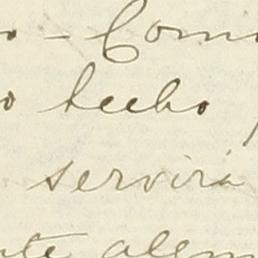 o - Com
o hecho
servirá
nte alem